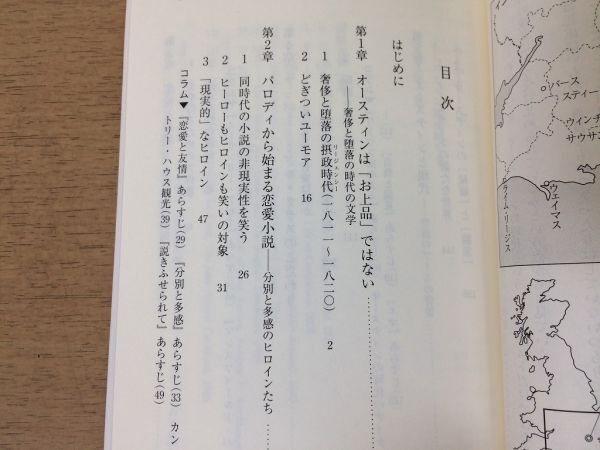 目次
はじめに
第1章 オースティンは「お上品」ではない…………
――奢侈と堕落の時代の文学
1 奢侈と堕落の摂政時代(一八一一〜一八二〇) 2
リージェンシー
2 どぎついユーモア 16
第2章 パロディから始まる恋愛小説――分別と多感のヒロインたち……
1 同時代の小説の非現実性を笑う 26
2 ヒーローもヒロインも笑いの対象 31
3 「現実的」なヒロイン 47
コラム▼『恋愛と友情』あらすじ(29) 『分別と多感』あらすじ(33) カン
トリー・ハウス観光(39) 『説きふせられて』あらすじ(49)
バース
スティー
ウィンチ
サウサン
ウェイマス
ライム・リージス